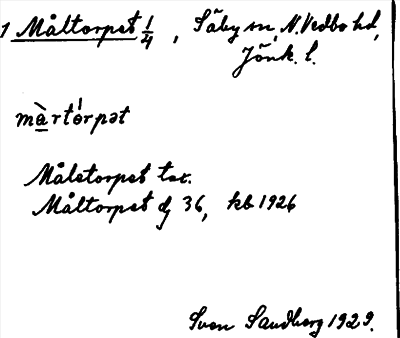 1 Måltorpet 1/4, Säby sn, N. Vedbo hd,
Jönk. l.
màrtórpət
Måletorpet tax.
Måltorpet dj 36, kb 1926
Sven Sandberg 1929.